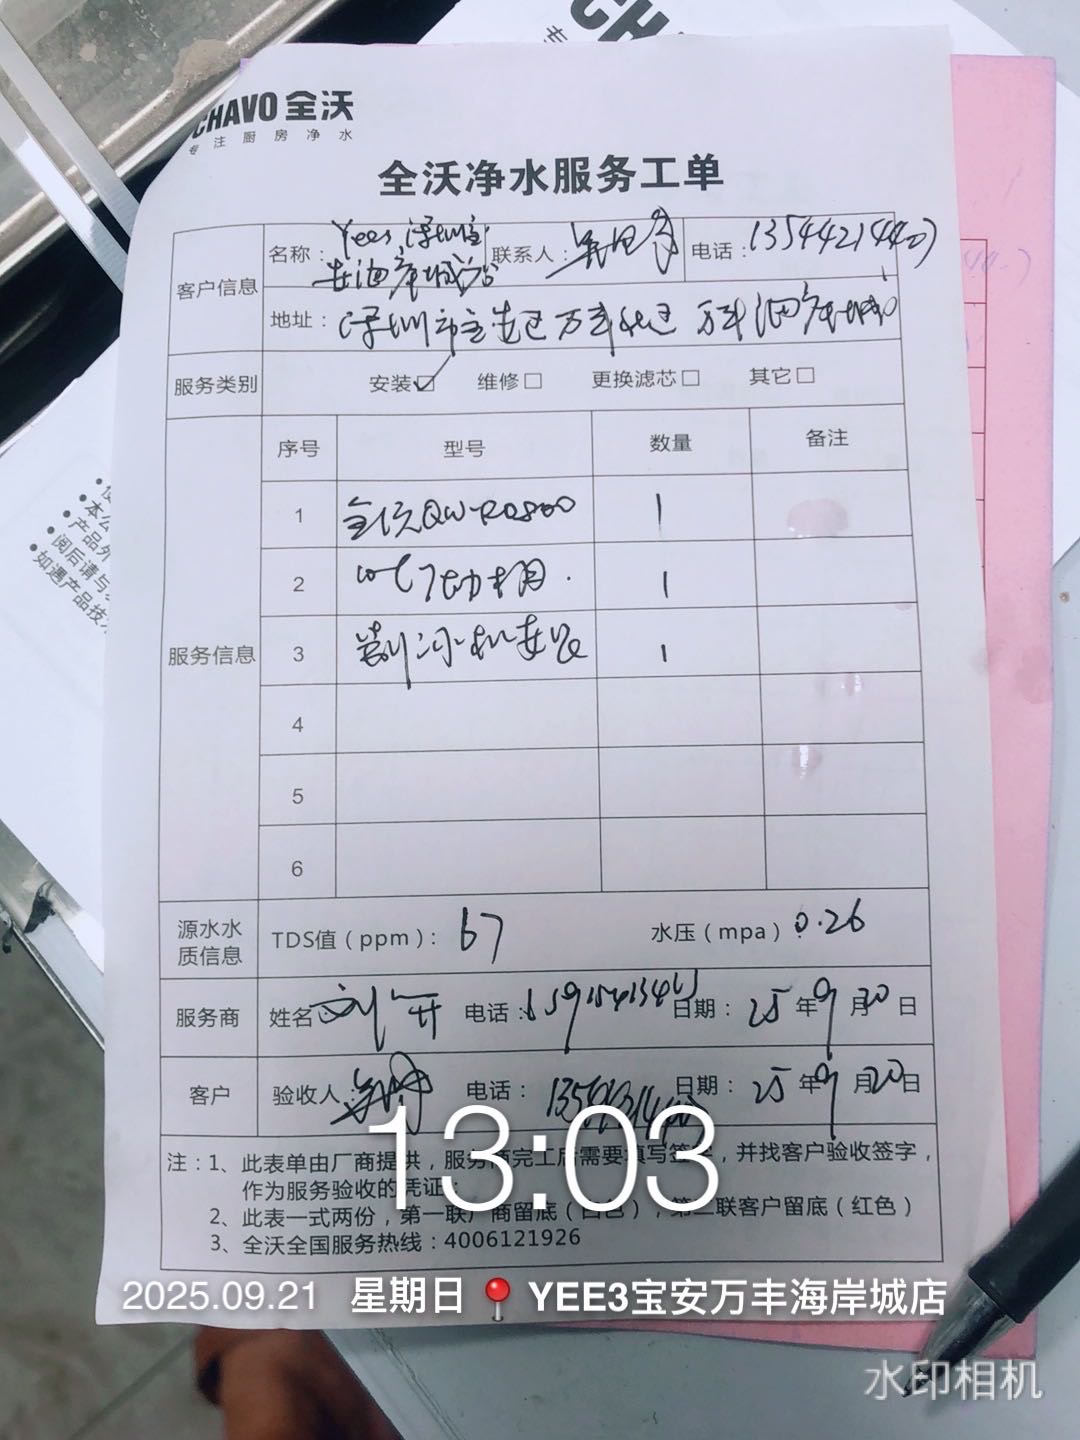 CHAVO 全沃
专注厨房净水
全沃净水服务工单
客户信息
名称：Yee3 深圳宝安海岸城店
联系人：
电话：
地址：深圳市宝安区万丰社区 万丰海岸城
服务类别 安装☑ 维修□ 更换滤芯□ 其它□
服务信息
序号 型号 数量 备注
1 全沃QW-RO800 1
2 1
3 制冰机安装 1
4
5
6
源水水质信息 TDS值（ppm）：67 水压（mpa）：0.26
服务商 姓名 刘 电话： 日期：25年9月20日
客户 验收人： 电话： 日期：25年9月20日
注：1、此表单由厂商提供，服务商完工后需要填写签字，并找客户验收签字，
作为服务验收的凭证；
2、此表一式两份，第一联厂商留底（白色），第二联客户留底（红色）
3、全沃全国服务热线：4006121926
13:03
2025.09.21 星期日 YEE3宝安万丰海岸城店
水印相机